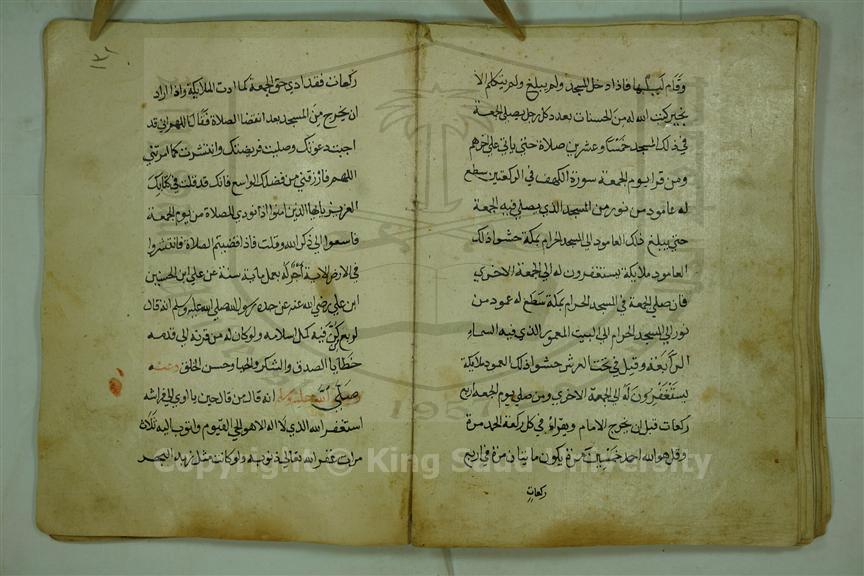 وقام ليلها فاذا دخل المسجد ولم يبلغ ولم يتكلم الا
بخير كتب الله له من الحسنات بعدد كل رجل يصلي الجمعة
في ذلك المسجد خمسا وعشرين صلاة حتى ياتي على اخرهم
ومن قرا يوم الجمعة سورة الكهف في الركعتين سطع
له عامود من نور من المسجد الذي يصلي فيه الجمعة
حتى يبلغ ذلك العامود الى المسجد الحرام بمكة حشو ذلك
العامود ملايكة يستغفرون له الى الجمعة الاخرى
فان صلى الجمعة في المسجد الحرام بمكة سطع له عمود من
نور الى المسجد الحرام الى البيت المعمور الذي فيه السماء
الرابعة وقيل في تحت العرش حشو ذلك العمود ملايكة
يستغفرون له الى الجمعة الاخرى ومن صلى يوم الجمعة اربع
ركعات قبل ان يخرج الامام ويقراؤ في كل ركعة الحمد مرة
وقل هو الله احد خمسين مرة يكون مايتان مرة في اربع
ركعات
١٣١
ركعات فقد ادى حق الجمعة كما ادت الملايكة واذا اراد
ان يخرج من المسجد بعد انقضا الصلاة فقال اللهم اني قد
اجبت دعوتك وصليت فريضتك وانتشرت كما امرتني
اللهم فارزقني من فضلك الواسع فانك قد قلت في كتابك
العزيز يايها الذين امنوا اذا نودي للصلاة من يوم الجمعة
فاسعوا الى ذكر الله وقلت فاذا قضيتم الصلاة فانتشروا
في الارض الاية اجر له بعمل ماية سنة عن علي ابن الحسين
ابن علي رضي الله عنه عن جده رسول الله صلى الله عليه وسلم انه قال
اربع كن فيه كمل اسلامه ولو كان له من قرنه الى قدمه
خطايا الصدق والشكر والحيا وحسن الخلق وعنه
صلى الله عليه وسلم انه قال من قال حين ياوي الى فراشه
استغفر الله الذي لا اله الا هو الحي القيوم واتوب اليه ثلاث
مرات غفر الله تعالى ذنوبه ولو كانت مثل زبد البحر
1957
Copyright © King Saud University